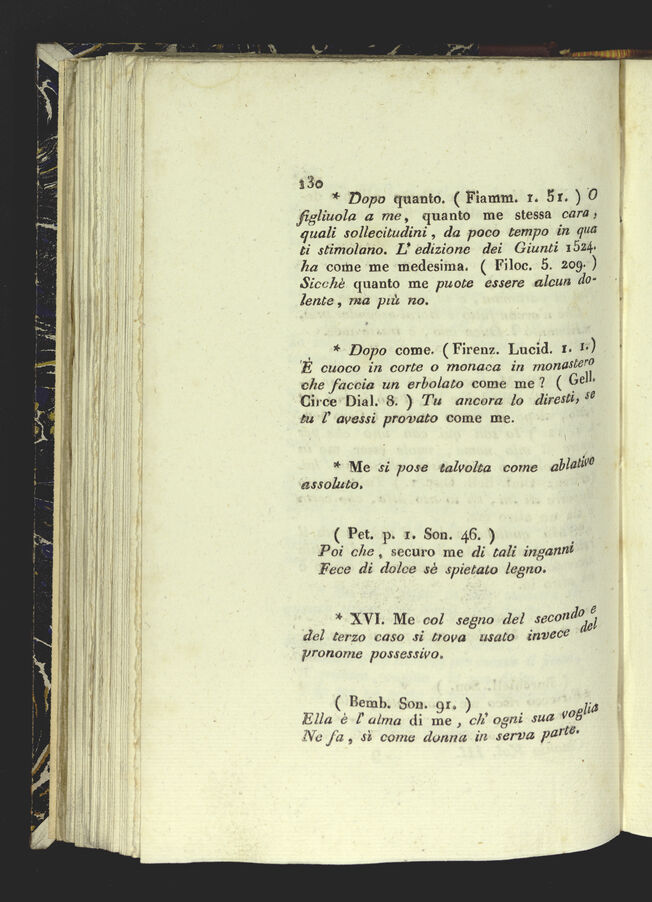 130
* Dopo quanto. ( Fiamm. 1. 51. ) O
figliuola a me, quanto me stessa cara,
quali sollecitudini, da poco tempo in qua
ti stimolano. L' edizione dei Giunti 1524.
ha come me medesima. ( Filoc. 5. 209. )
Sicchè quanto me puote essere alcun do-
lente, ma più no.
* Dopo come. ( Firenz. Lucid. 1. 1. )
È cuoco in corte o monaca in monastero
che faccia un erbolato come me ? ( Gell.
Circe Dial. 8. ) Tu ancora lo diresti, se
tu l' avessi provato come me.
* Me si pose talvolta come ablativo
assoluto.
( Pet. p. 1. Son. 46. )
Poi che, securo me di tali inganni
Fece di dolce sè spietato legno.
* XVI. Me col segno del secondo e
del terzo caso si trova usato invece del
pronome possessivo.
( Bemb. Son. 91. )
Ella è l' alma di me, ch' ogni sua voglia
Ne fa, sì come donna in serva parte.